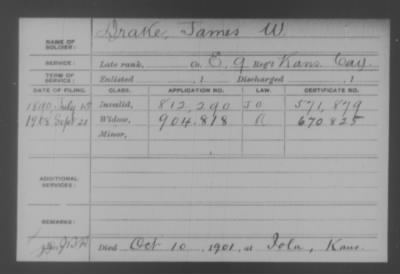 NAME OF SOLDIER: Drake, James W.
SERVICE: Late rank, Co. E, 9 Reg't Kans. Cav.
TERM OF SERVICE: Enlisted , 1 Discharged , 1
DATE OF FILING. CLASS. APPLICATION NO. LAW. CERTIFICATE NO.
1890, July 15 Invalid, 812,290 571,879
1908 Sept 21 Widow, 904.818 670825
Minor,
ADDITIONAL SERVICES:
REMARKS:
Died Oct 10, 1901, at Iola, Kans.